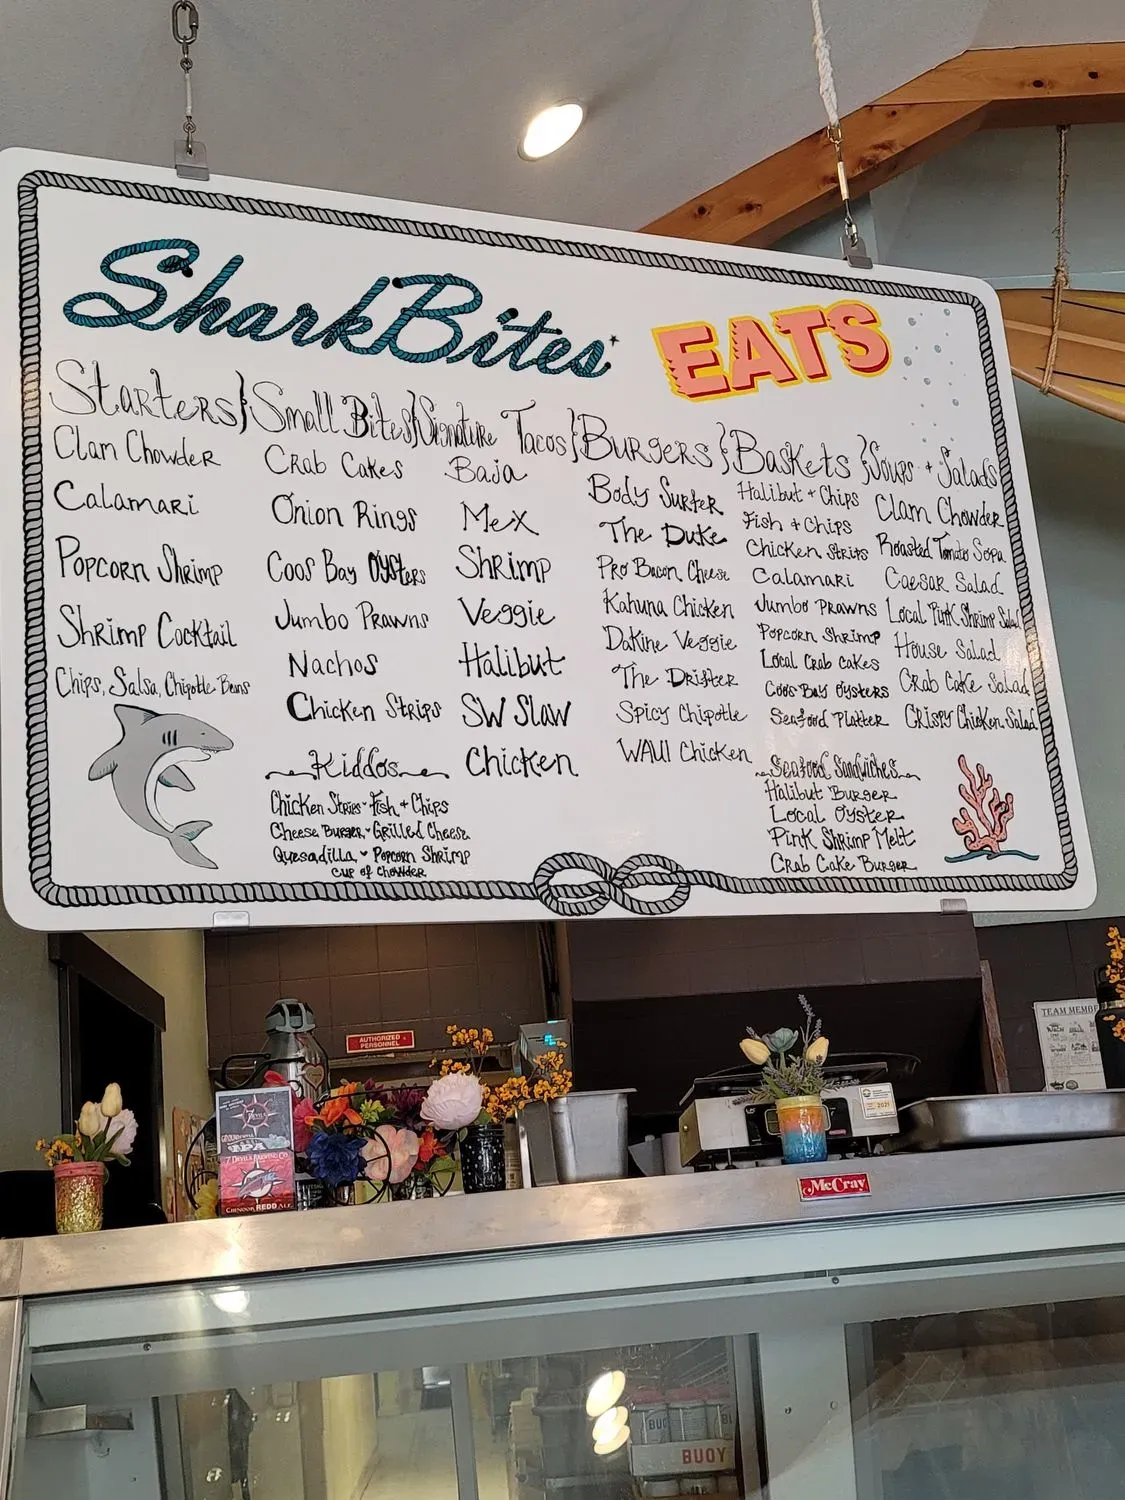 SharkBites
EATS
Starters
Clam Chowder
Calamari
Popcorn Shrimp
Shrimp Cocktail
Chips, Salsa, Chipotle Beans
Small Bites
Crab Cakes
Onion Rings
Coos Bay Oysters
Jumbo Prawns
Nachos
Chicken Strips
Kiddos
Chicken Strips - Fish + Chips
Cheese Burger - Grilled Cheese
Quesadilla - Popcorn Shrimp
cup of chowder
Signature Tacos
Baja
Mex
Shrimp
Veggie
Halibut
SW Slaw
Chicken
Burgers
Body Surfer
The Duke
Pro Bacon Cheese
Kahuna Chicken
DaKine Veggie
The Drifter
Spicy Chipotle
WAUI Chicken
Baskets
Halibut + Chips
Fish + Chips
Chicken Strips
Calamari
Jumbo Prawns
Popcorn Shrimp
Local Crab Cakes
Coos Bay Oysters
Seafood Platter
Seafood Sandwiches
Halibut Burger
Local Oyster
Pink Shrimp Melt
Crab Cake Burger
Soups + Salads
Clam Chowder
Roasted Tomato Sopa
Caesar Salad
Local Pink Shrimp Salad
House Salad
Crab Cake Salad
Crispy Chicken Salad
AUTHORIZED
PERSONNEL
TEAM MEMB
7 DEVILS
IPA
7 DEVILS BREWING CO.
CHINOOK REDD ALE
2021
McCray
BUOY